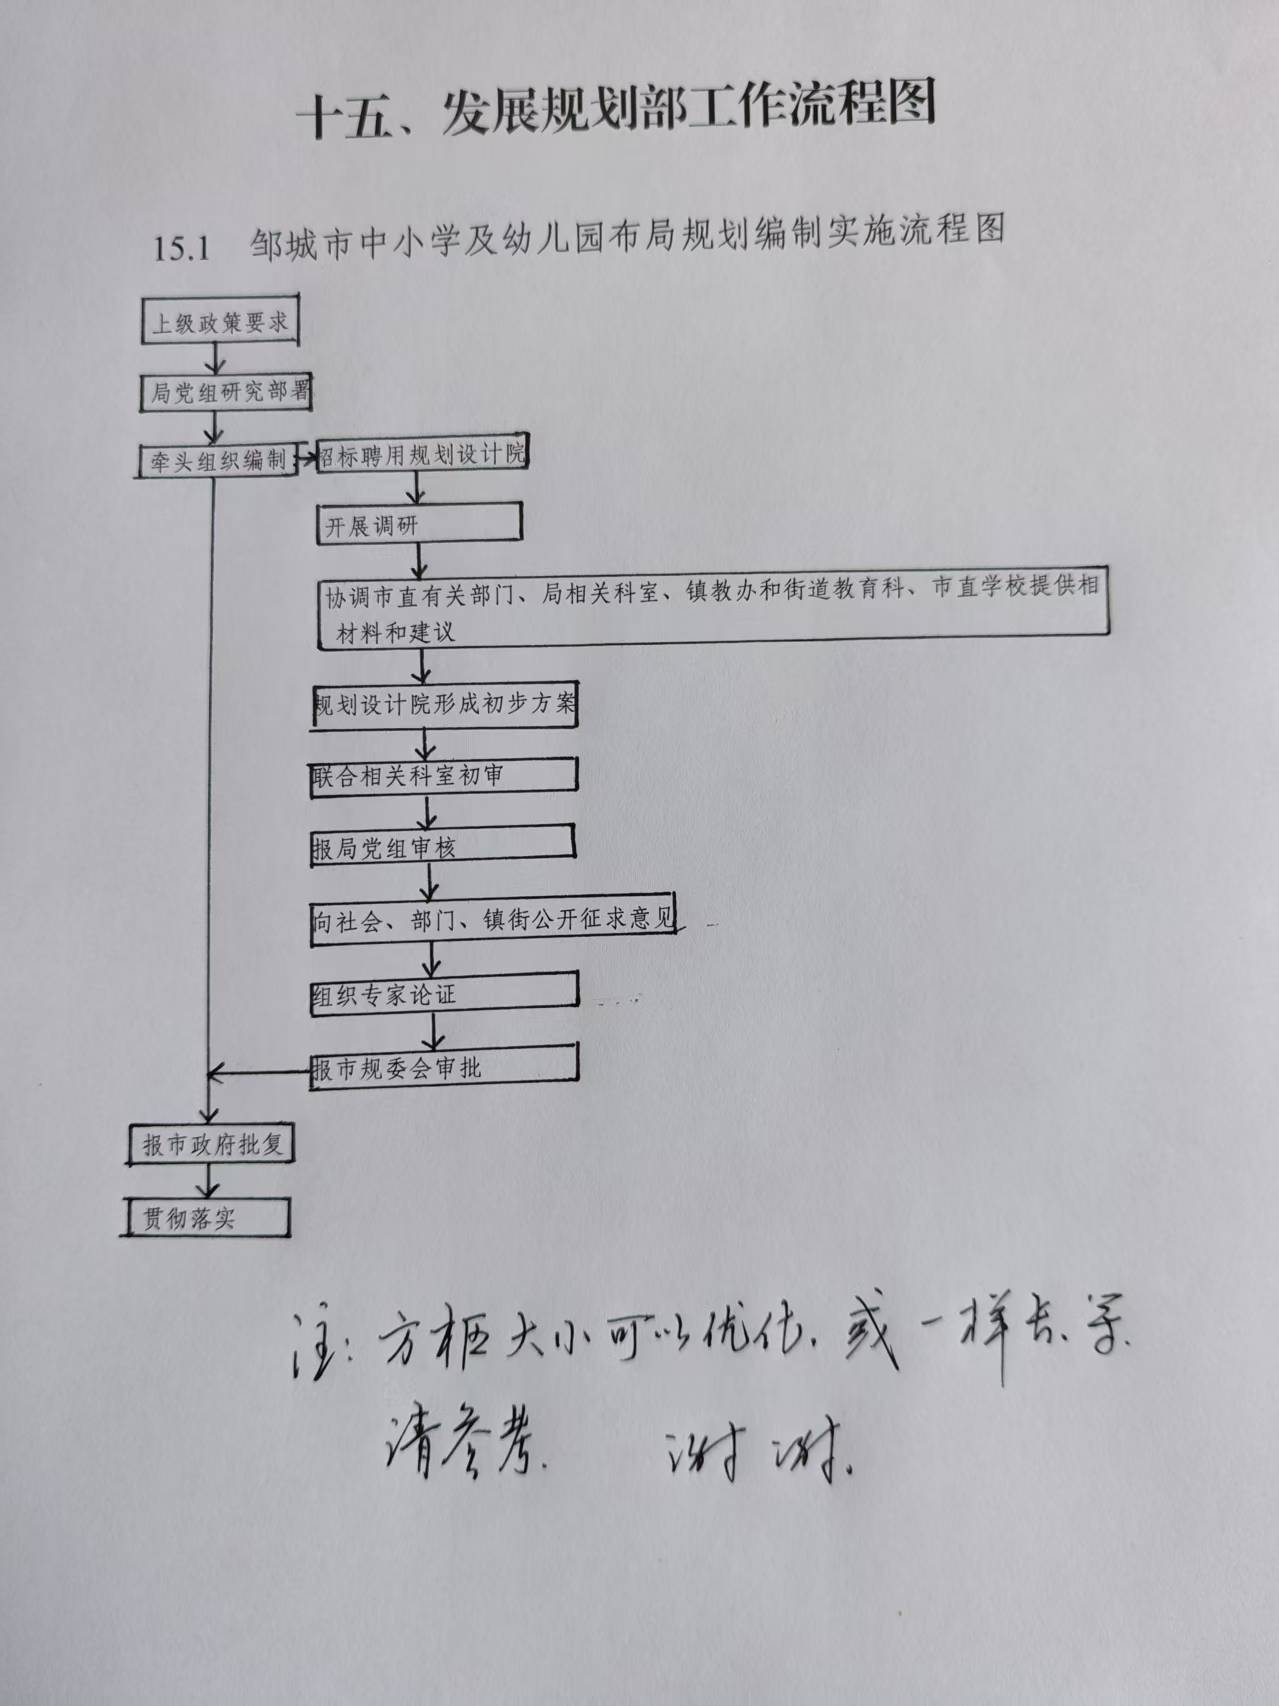 十五、发展规划部工作流程图
15.1 邹城市中小学及幼儿园布局规划编制实施流程图
上级政策要求
局党组研究部署
牵头组织编制
招标聘用规划设计院
开展调研
协调市直有关部门、局相关科室、镇教办和街道教育科、市直学校提供相
材料和建议
规划设计院形成初步方案
联合相关科室初审
报局党组审核
向社会、部门、镇街公开征求意见
组织专家论证
报市规委会审批
报市政府批复
贯彻落实
注:方框大小可以优化.或一样长、等.
请参考. 谢谢.